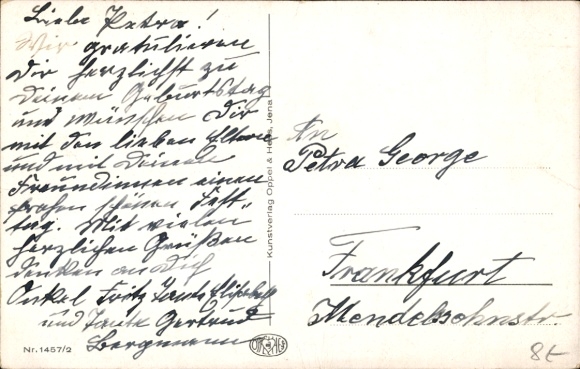 Liebe Petra!
Wir gratulieren
Dir herzlichst zu
deinem Geburtstag
und wünschen Dir
mit den lieben Eltern
und mit deinen
Freundinnen einen
frohen schönen Fest-
tag. Mit vielen
herzlichen Grüßen
denken an Dich
Onkel Fritz Tante Elisabeth
und Tante Gertrud
Bergmann
Nr. 1457/2
Kunstverlag Oppel & Hess, Jena
An
Petra George
Frankfurt
Mendelssohnstr.
8t